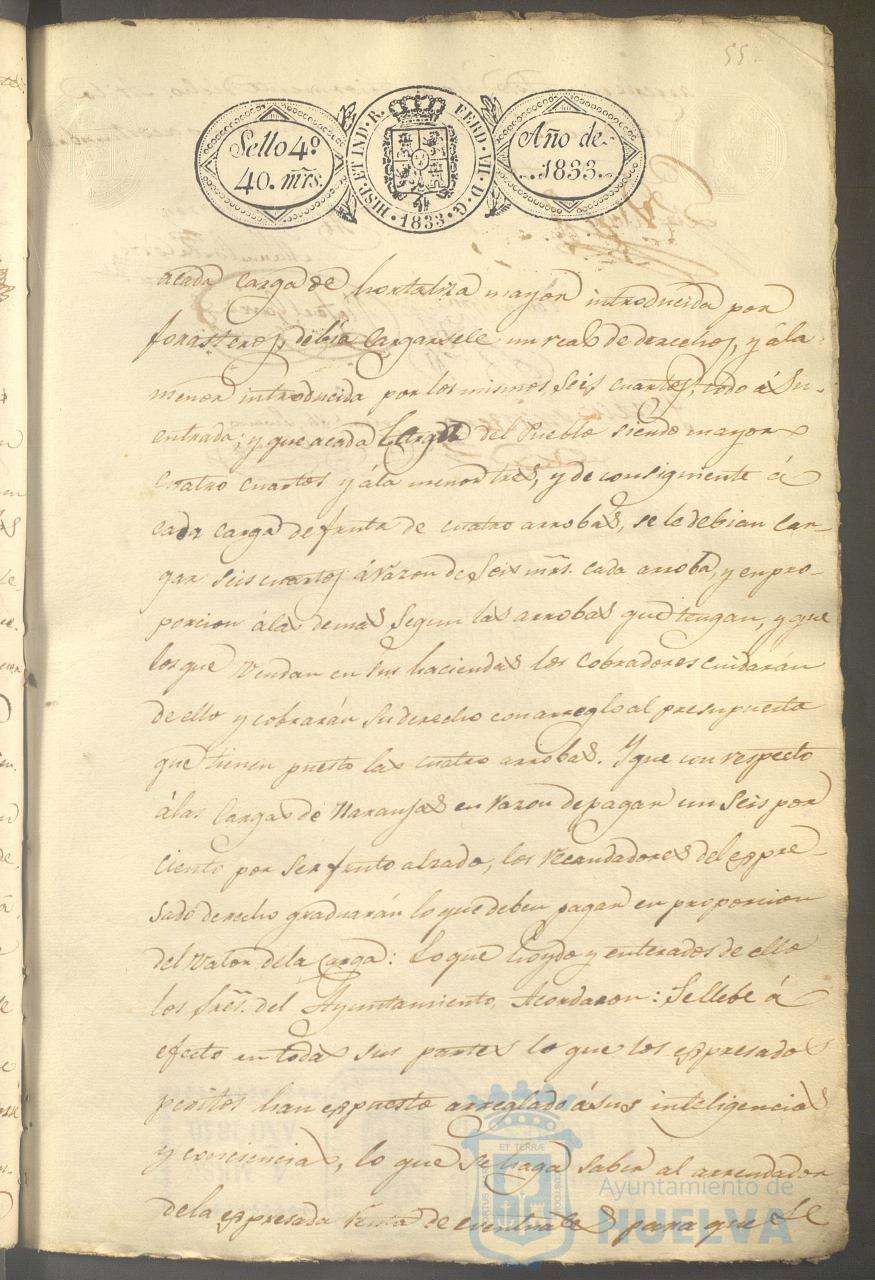 55.
Sello 4º
40. mrs.
HISP. ET IND. R. FERD. VII. D. G.
1833
Año de
1833.
acada carga de hortaliza mayor introducida por
forasteros, debia cargarsele un real de derechos, y ála
menor introducida por los mismos seis cuartos, todo á su
entrada; y que acada Carga del Pueblo siendo mayor
cuatro cuartos y ála menor tres, y de consigniente á
cada carga de fruta de cuatro arrobas, se le debian Car-
gar seis cuartos á razon de seis mrs. cada arroba, y en pro-
porcion álas demas segun las arrobas que tengan, y que
los que vendan en sus haciendas los cobradores cuidarán
de ello y cobrarán su derecho con arreglo al presupuesto
que tienen puesto las cuatro arrobas. Y que con respecto
álas Cargas de Naranjas en razon de pagar un seis por
ciento por ser fruto alzado, los recaudadores del espre-
sado derecho graduarán lo que deben pagar en proporcion
del valor dela Carga: Lo que hoydo y enterados de ello
los Sres. del Ayuntamiento, Acordaron: Se llebe á
efecto en todas sus partes lo que los espresados
peritos han espuesto arreglado á sus inteligencias
y esciencia, lo que se haga saber al arrendador
dela espresada renta de eventuales para que se
ET TERRÆ
Ayuntamiento de
HUELVA